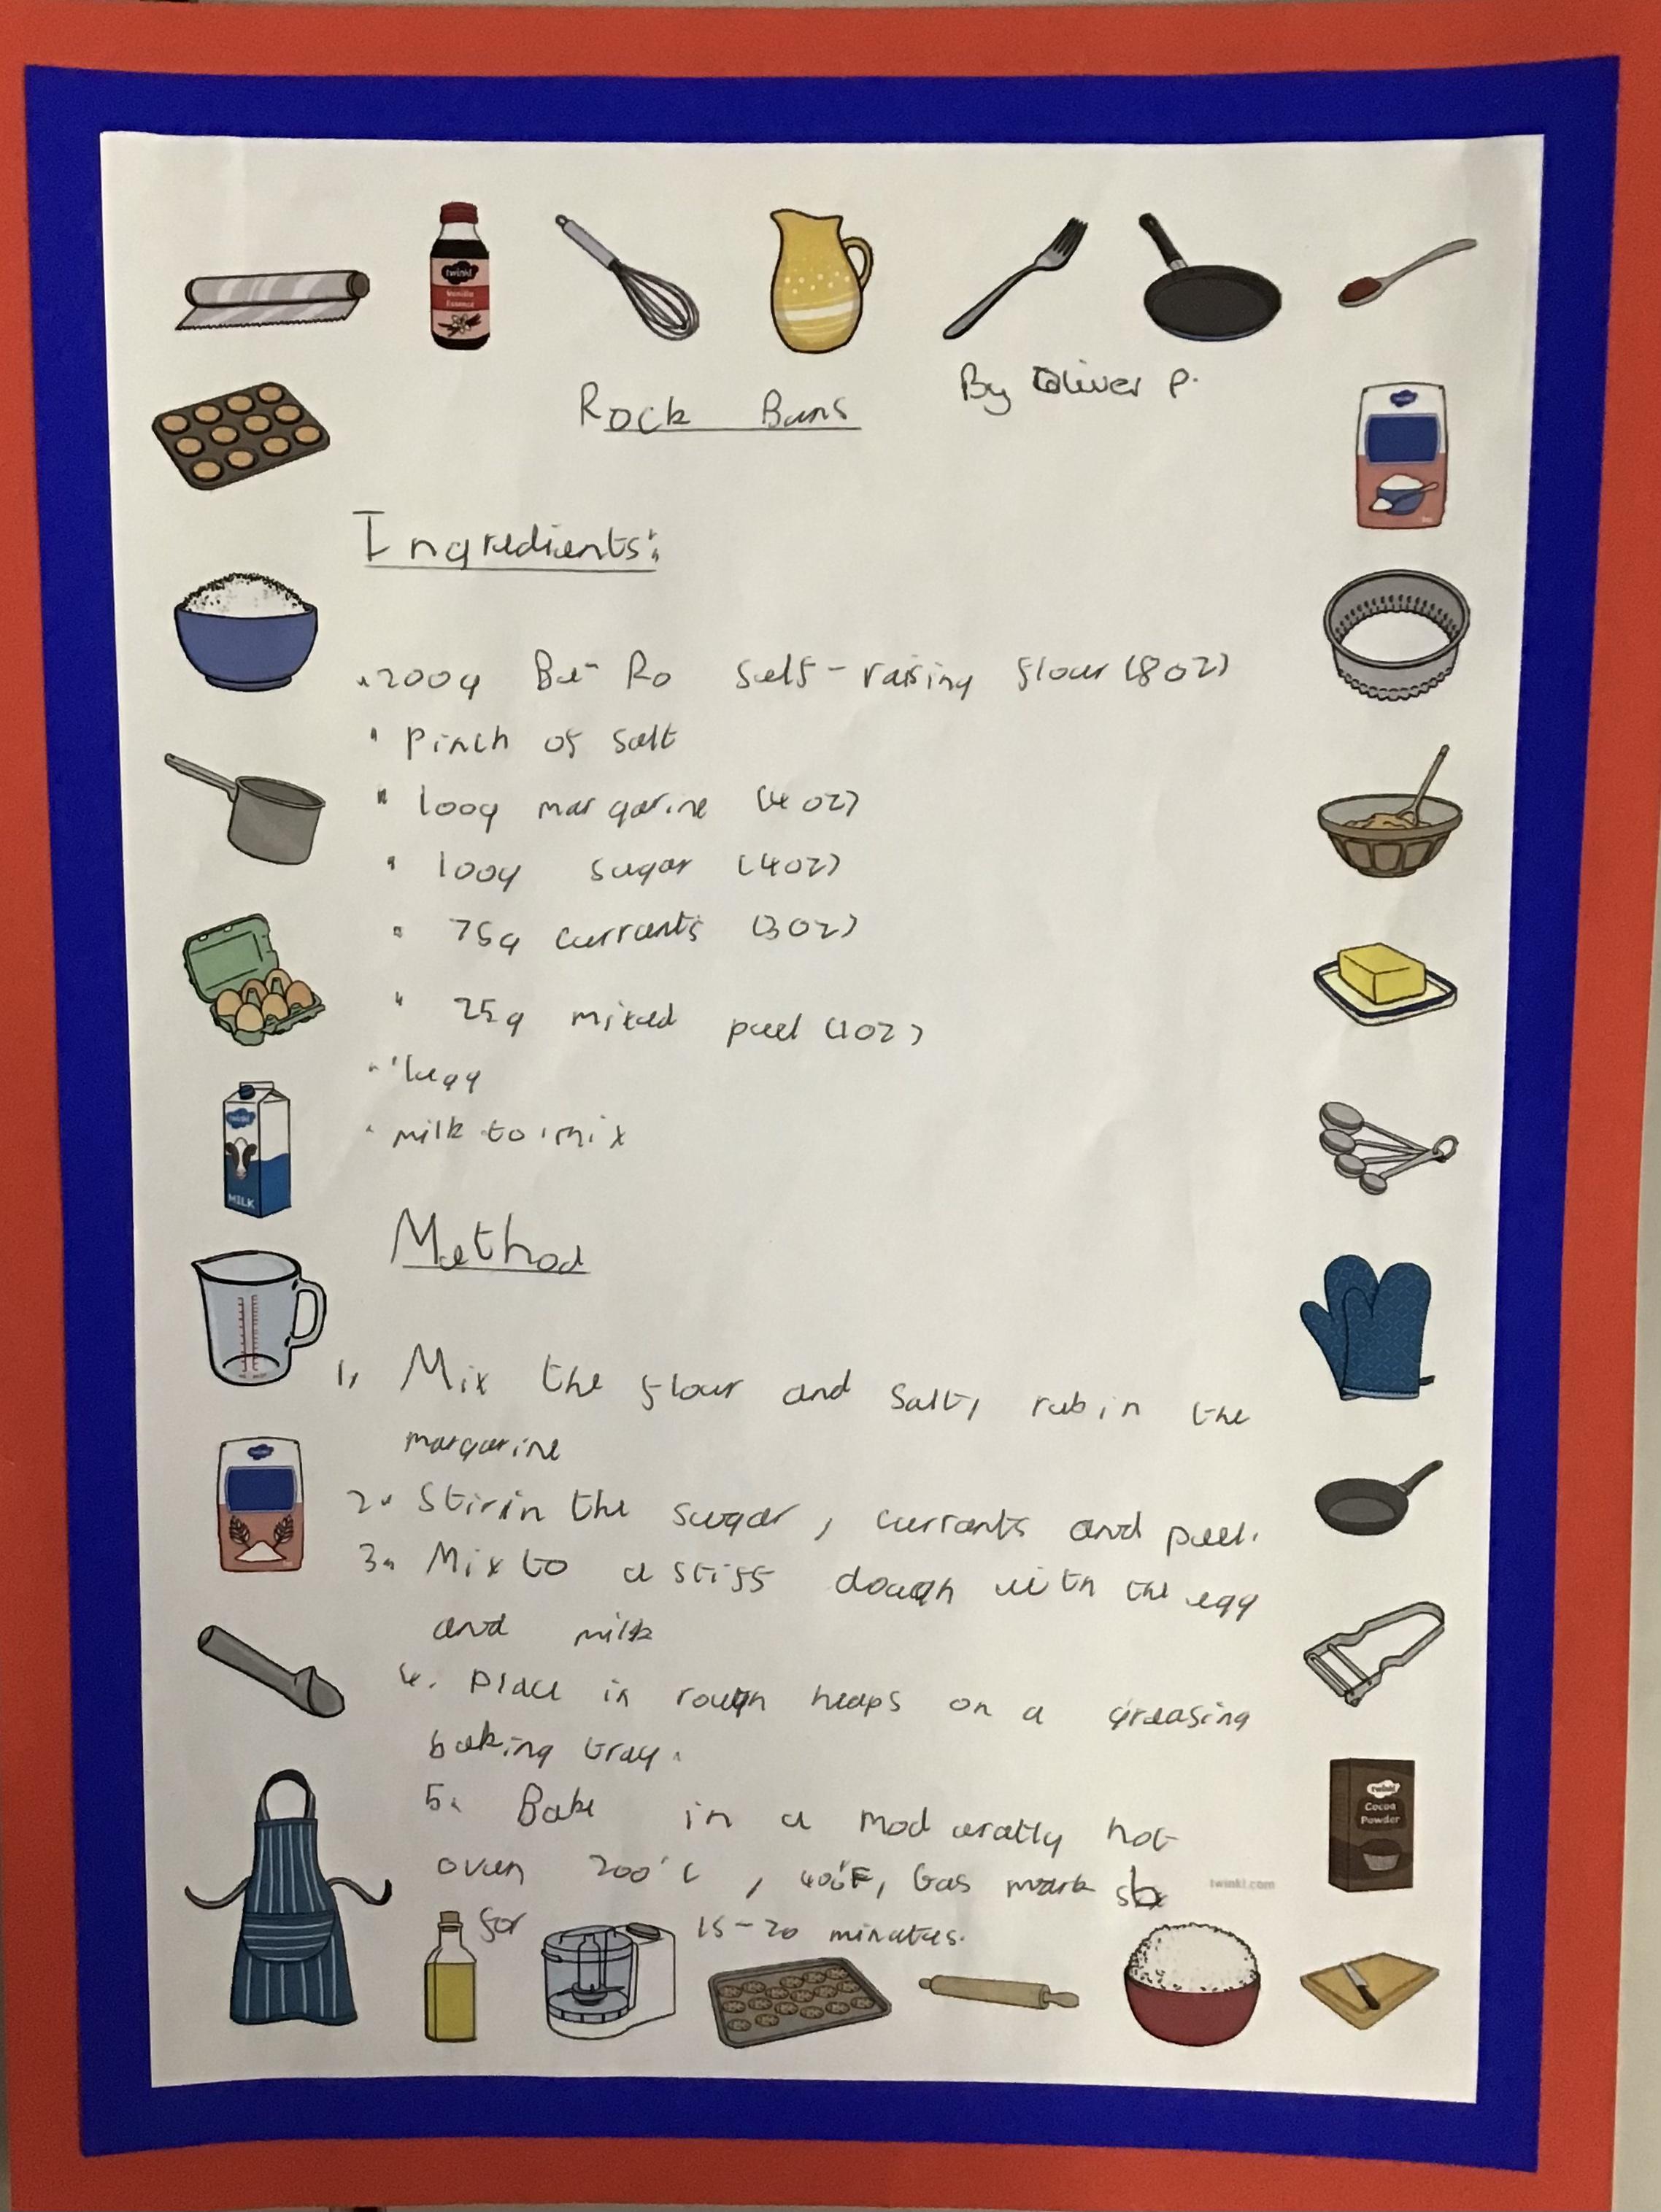 twinkl
Vanilla
Essence
Rock Buns
By Oliver P.
Ingredients:
• 200g Be-Ro self-raising flour (8oz)
• pinch of salt
• 100g margarine (4oz)
• 100g sugar (4oz)
• 75g currants (3oz)
• 25g mixed peel (1oz)
• 1 egg
• milk to mix
twinkl
MILK
Method
1. Mix the flour and salt, rub in the
margarine
2. Stir in the sugar, currants and peel.
3. Mix to a stiff dough with the egg
and milk
4. Place in rough heaps on a greasing
baking tray.
5. Bake in a moderatly hot
oven 200°C, 400°F, Gas mark
for 15-20 minutes.
twinkl
Cocoa
Powder
twinkl.com